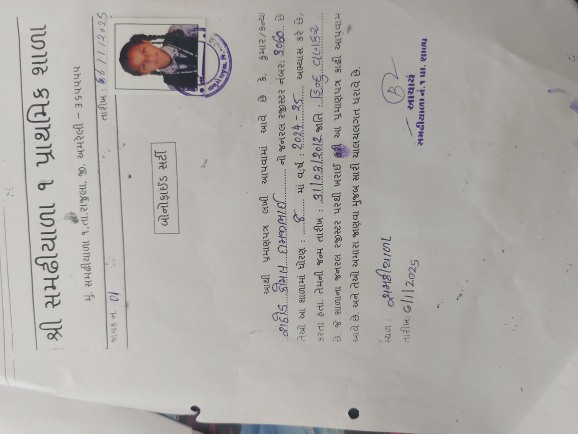 શ્રી સમઢીયાળા ૧ પ્રાથમિક શાળા
મું. સમઢીયાળા ૧,તા.રાજુલા, જી. અમરેલી - ૩૬૫૫૫૫
જાવક નં. 01 તારીખ : 06/1/2025
બોનાફાઈડ સર્ટી
આથી પ્રમાણપત્ર લખી આપવામાં આવે છે કે, કુમાર/કન્યા
કોમલ નો જનરલ રજીસ્ટર નંબર: છે
તેઓ આ શાળામાં ધોરણ : માં વર્ષ : 2024-25 અભ્યાસ કરે છે.
કરતા હતા. તેમની જન્મ તારીખ : 31/03/2012 જાતિ : હિન્દુ વણકર
છે. જે શાળાના જનરલ રજીસ્ટર પરથી ખરાઈ કરી આ પ્રમાણપત્ર કાઢી આપવામાં
આવે છે. અને તેઓ અમારા જાણવા મુજબ સારી ચાલચલગત ધરાવે છે.
સ્થળ : સમઢીયાળા
તારીખ: 6/1/2025
આચાર્ય
સમઢીયાળા નં.૧ પ્રા. શાળા